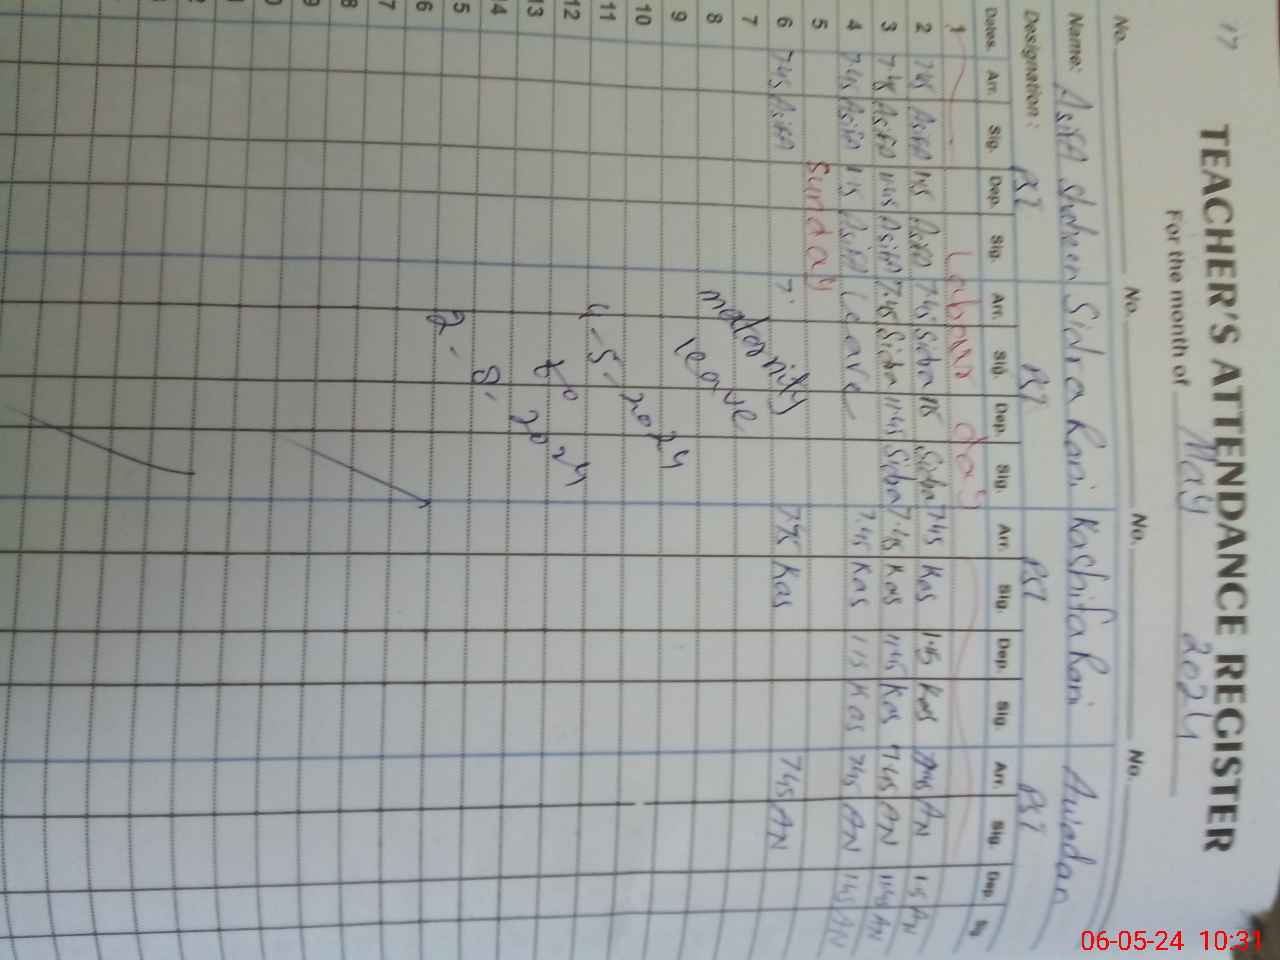 17
TEACHER'S ATTENDANCE REGISTER
For the month of May 2024
No. No. No. No.
Name: Asifa Shaheen Sidra Rani Kashifa Rani
Designation: PST PST PST PST
Dates. Arr. Sig. Dep. Sig. Arr. Sig. Dep. Sig. Arr. Sig. Dep. Sig. Arr. Sig. Dep Sig
1 Labour day
2 7:45 Asifa 1:15 Asifa 7:45 Sidra 1:15 Sidra 7:45 Kas 1:15 Kas 7:45 AN 1:15 AN
3 7:45 Asifa 11:45 Asifa 7:45 Sidra 11:45 Sidra 7:45 Kas 11:45 Kas 7:45 AN 11:45 AN
4 7:45 Asifa 1:15 Asifa Leave 7:45 Kas 1:15 Kas 7:45 AN 1:45 AN
5 Sunday
6 7:45 Asifa 7. 7:45 Kas 7:45 AN
7 maternity
8 leave
9
10
11 4-5-2024
12 to
13
14
15 2-8-2024
6
7
8
9
06-05-24 10:31